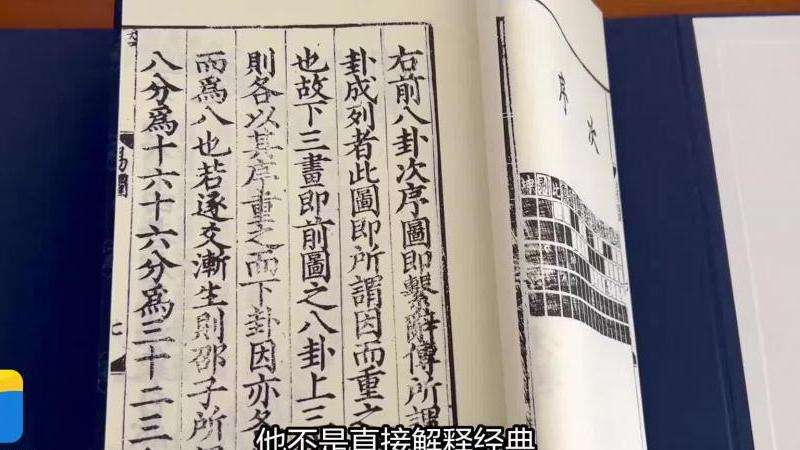 序次
坤剝比
右前八卦次序圖即繫辭傳所謂
卦成列者此圖即所謂因而重之
也故下三畫即前圖之八卦上三
則各以其序重之而下卦因亦各
而爲八也若逐爻漸生則邵子所
八分爲十六十六分爲三十二三
易圖
七
他不是直接解释经典